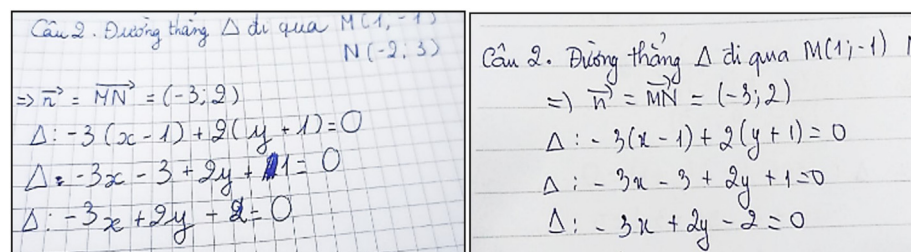 Câu 2. Đường thẳng Δ đi qua M(1,-1)
N(-2;3)
=> n⃗ = MN⃗ = (-3;2)
Δ: -3(x-1)+2(y+1)=0
Δ: -3x-3+2y+1=0
Δ: -3x+2y-2=0
Câu 2. Đường thẳng Δ đi qua M(1;-1) N
=> n⃗ = MN⃗ = (-3;2)
Δ: -3(x-1)+2(y+1)=0
Δ: -3x-3+2y+1=0
Δ: -3x+2y-2=0